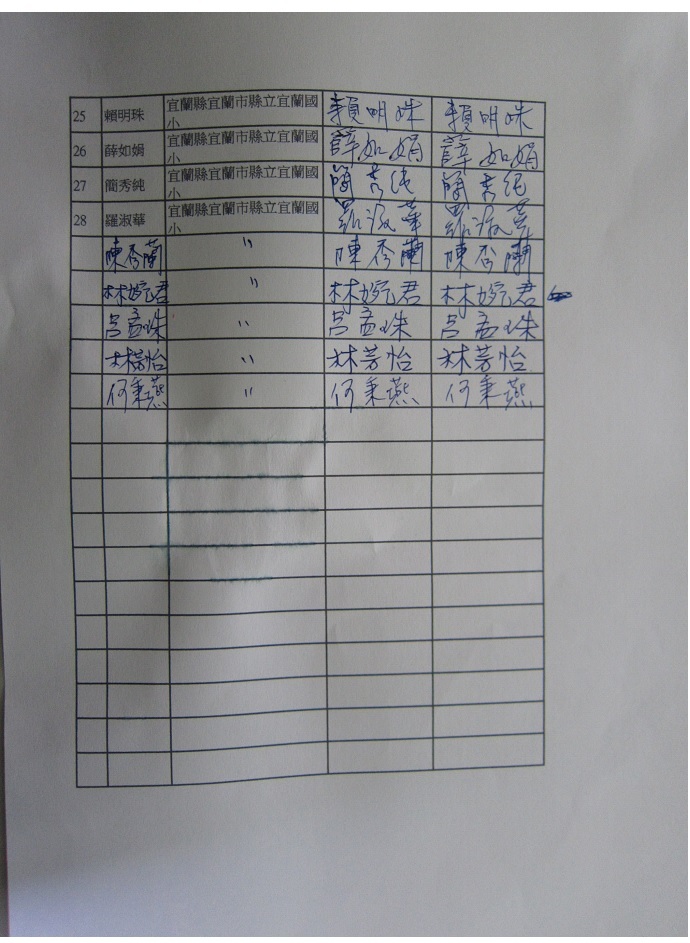 25 賴明珠 宜蘭縣宜蘭市縣立宜蘭國小 賴明珠 賴明珠
26 薛如娟 宜蘭縣宜蘭市縣立宜蘭國小 薛如娟 薛如娟
27 簡秀純 宜蘭縣宜蘭市縣立宜蘭國小 簡秀純 簡秀純
28 羅淑華 宜蘭縣宜蘭市縣立宜蘭國小 羅淑華 羅淑華
陳秀蘭 〃 陳秀蘭 陳秀蘭
林婉君 〃 林婉君 林婉君
呂孟珠 〃 呂孟珠 呂孟珠
林芳怡 〃 林芳怡 林芳怡
何秉燕 〃 何秉燕 何秉燕